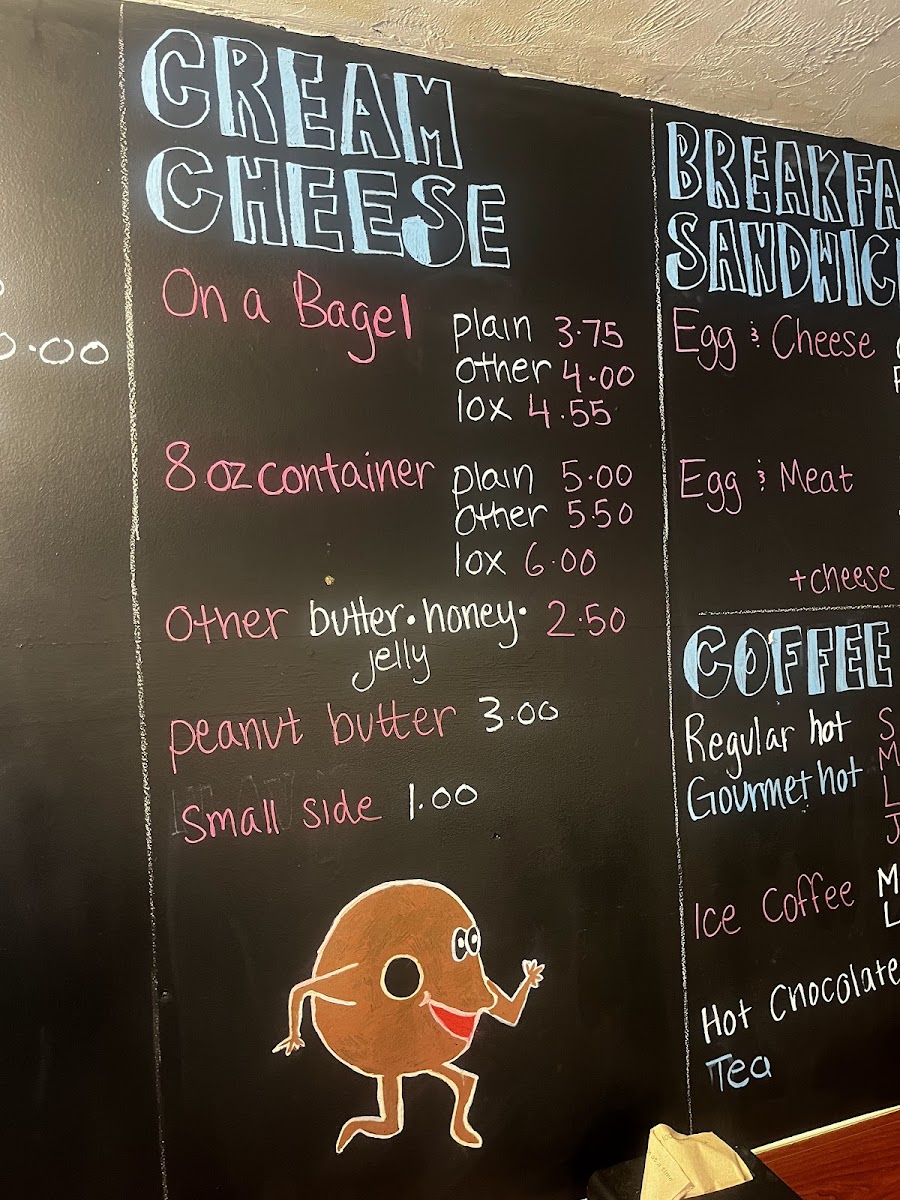 0.00
CREAM
CHEESE
On a Bagel
plain 3.75
other 4.00
lox 4.55
8 oz container
plain 5.00
other 5.50
lox 6.00
Other butter • honey • 2.50
jelly
peanut butter 3.00
Small side 1.00
BREAKFA
SANDWIC
Egg & Cheese
Egg & Meat
+cheese
COFFEE
Regular hot S
Gourmet hot M
L
J
Ice Coffee M
L
Hot Chocolate
Tea